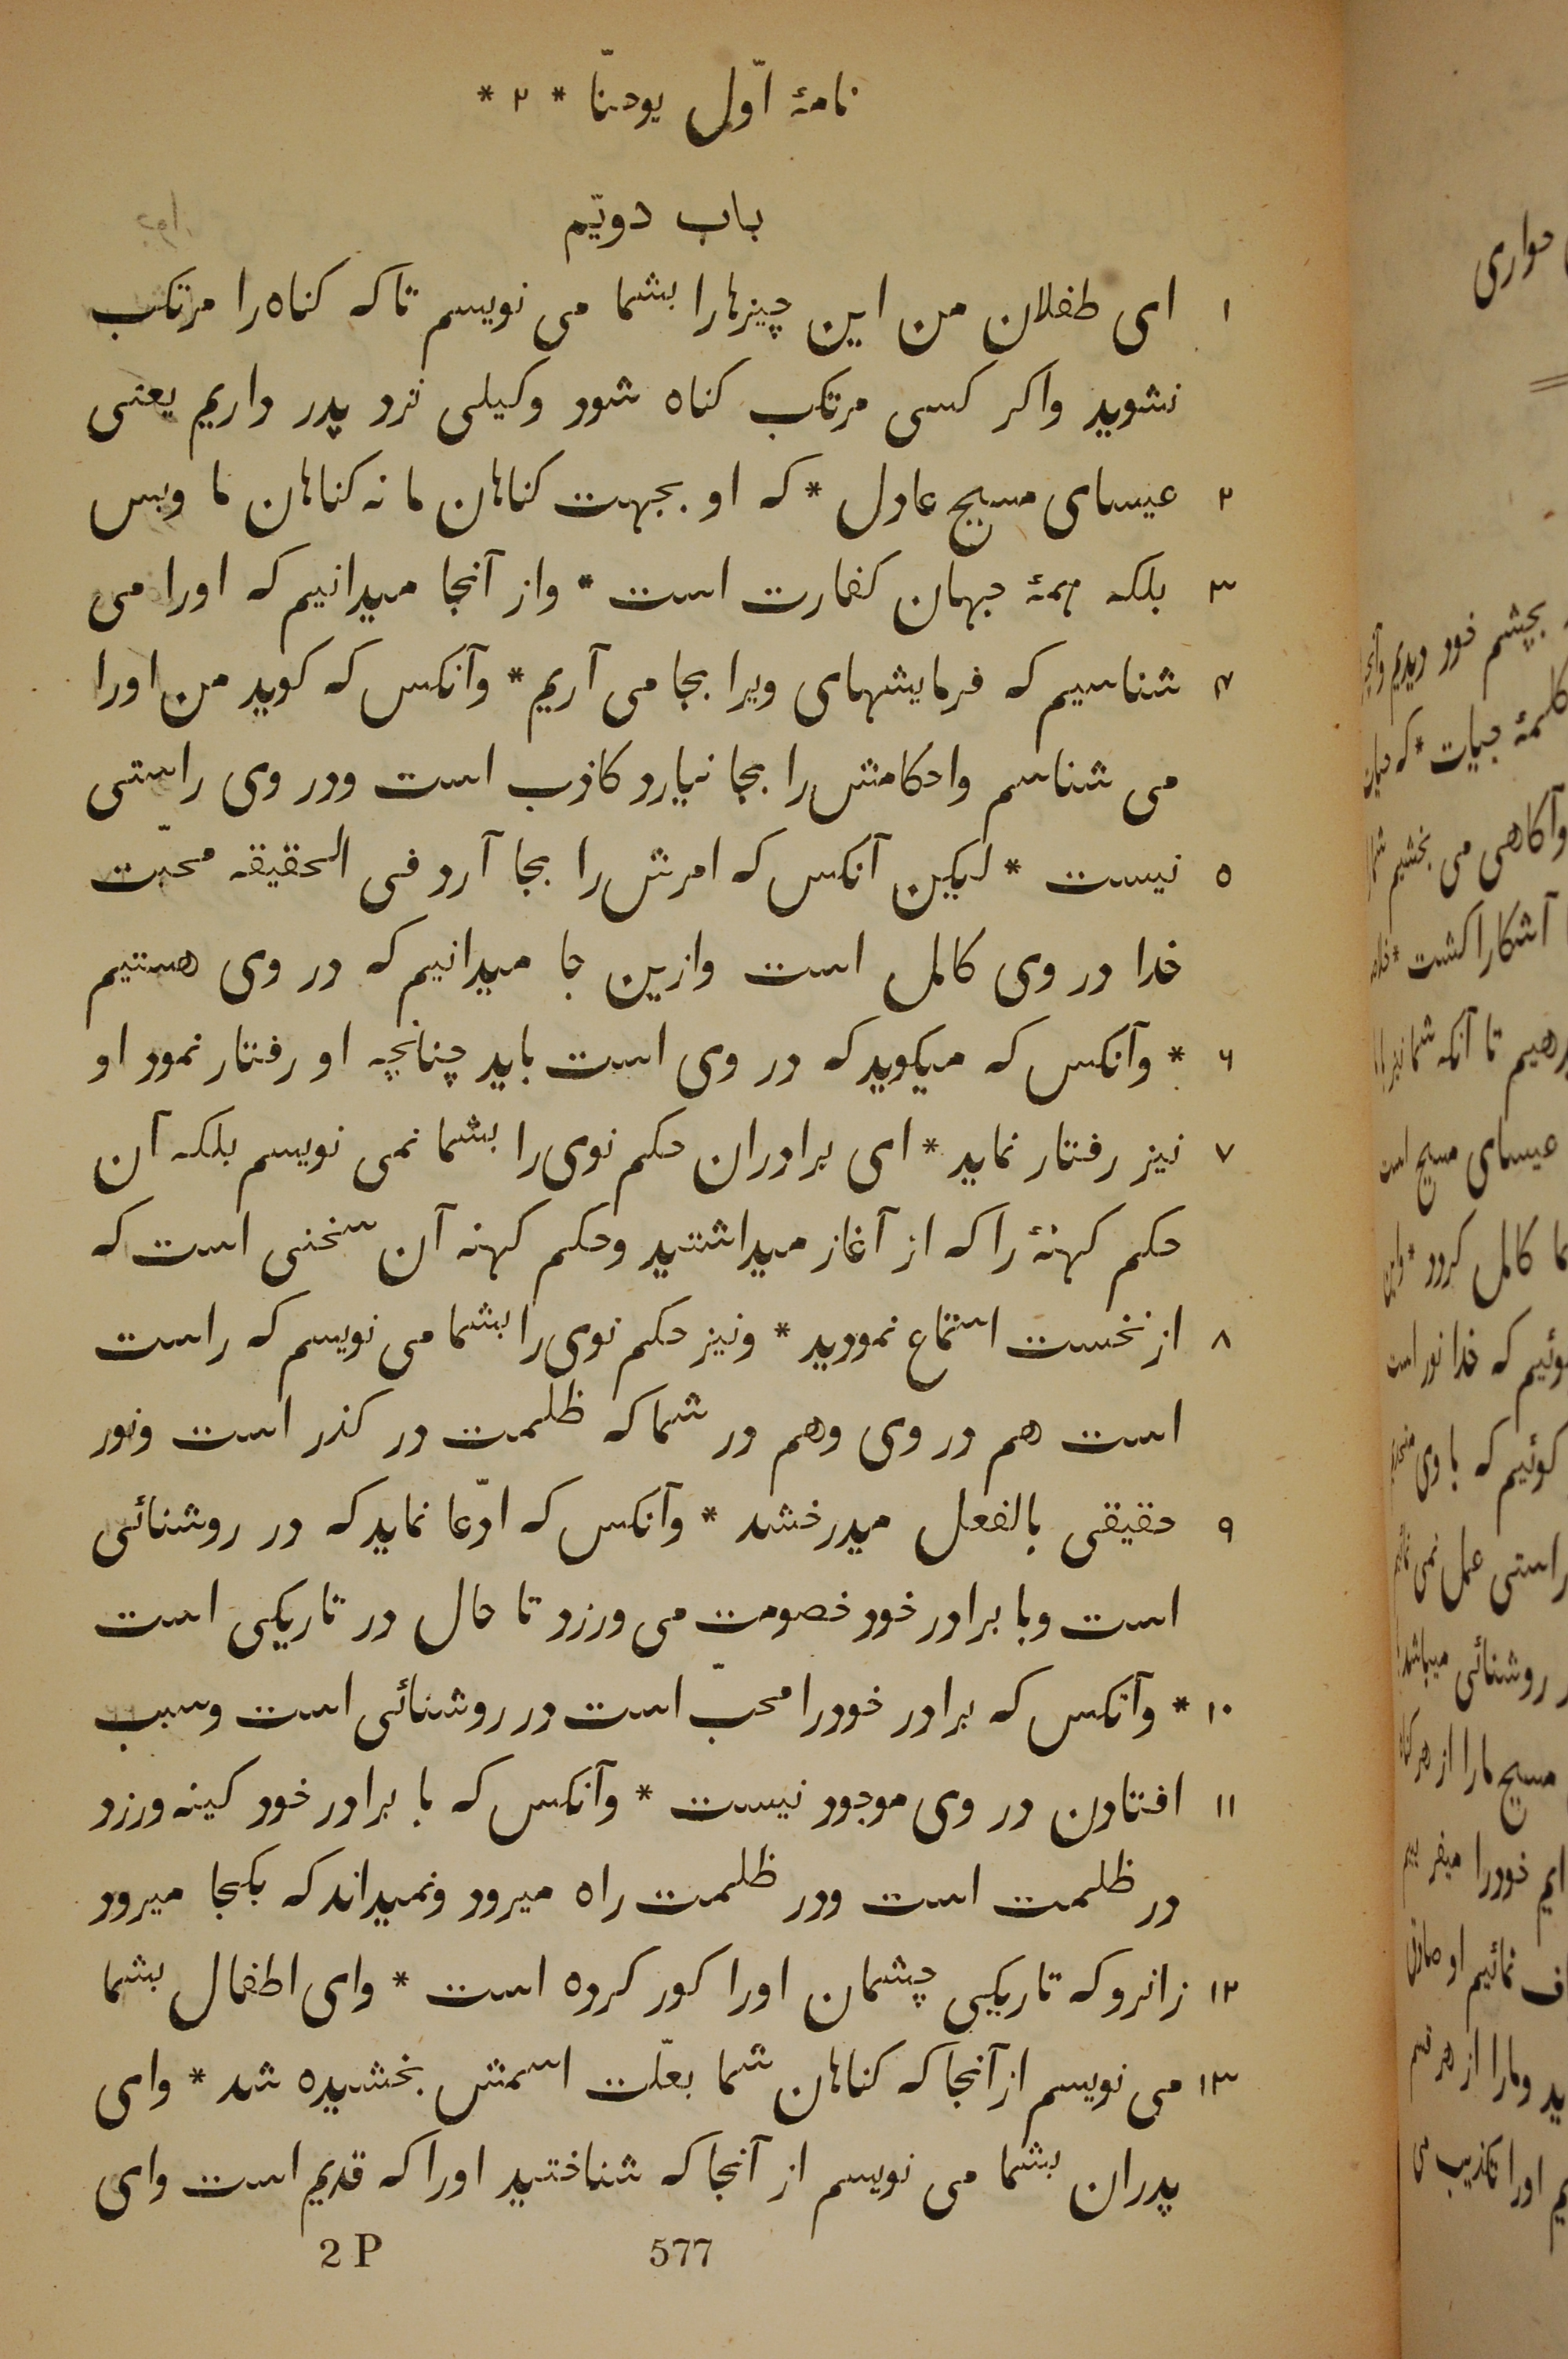 نامهٔ اوّل یوحنّا * ۲ *
باب دویّم
۱ ای طفلان من این چیزها را بشما می نویسم تا که کناه را مرتکب
نشوید واکر کسی مرتکب کناه شود وکیلی نزد پدر داریم یعنی
۲ عیسای مسیح عادل * که او بجهت کناهان ما نه کناهان ما وبس
۳ بلکه همهٔ جهان کفارت است * واز آنجا میدانیم که اورا می
۴ شناسیم که فرمایشهای ویرا بجا می آریم * وآنکس که کوید من اورا
می شناسم واحکامش را بجا نیارد کاذب است ودر وی راستی
۵ نیست * لیکن آنکس که امرش را بجا آرد فی الحقیقه محبّت
خدا در وی کامل است وازین جا میدانیم که در وی هستیم
۶ * وآنکس که میکوید که در وی است باید چنانچه او رفتار نمود او
۷ نیز رفتار نماید * ای برادران حکم نوی را بشما نمی نویسم بلکه آن
حکم کهنهٔ را که از آغاز میداشتید وحکم کهنه آن سخنی است که
۸ از نخست استماع نمودید * ونیز حکم نوی را بشما می نویسم که راست
است هم در وی وهم در شما که ظلمت در کذر است ونور
۹ حقیقی بالفعل میدرخشد * وآنکس که ادّعا نماید که در روشنائی
است وبا برادر خود خصومت می ورزد تا حال در تاریکی است
۱۰ * وآنکس که برادر خودرا محبّ است در روشنائی است وسبب
۱۱ افتادن در وی موجود نیست * وآنکس که با برادر خود کینه ورزد
در ظلمت است ودر ظلمت راه میرود ونمیداند که بکجا میرود
۱۲ زانرو که تاریکی چشمان اورا کور کرده است * وای اطفال بشما
۱۳ می نویسم از آنجا که کناهان شما بعلّت اسمش بخشیده شد * وای
پدران بشما می نویسم از آنجا که شناختید اورا که قدیم است وای
2 P 577
حواری
بچشم خود دیدیم
کلمهٔ حیات * که
وآکاهی می بخشیم
آشکارا کشت *
تا آنکه شما نیز
عیسای مسیح است
کامل کردد *
که خدا نور است
کوئیم که با وی
راستی عمل نمی
روشنائی میباشد
مسیح مارا از هر
ایم خودرا
نمائیم او صادق
ومارا از هر
اورا تکذیب می